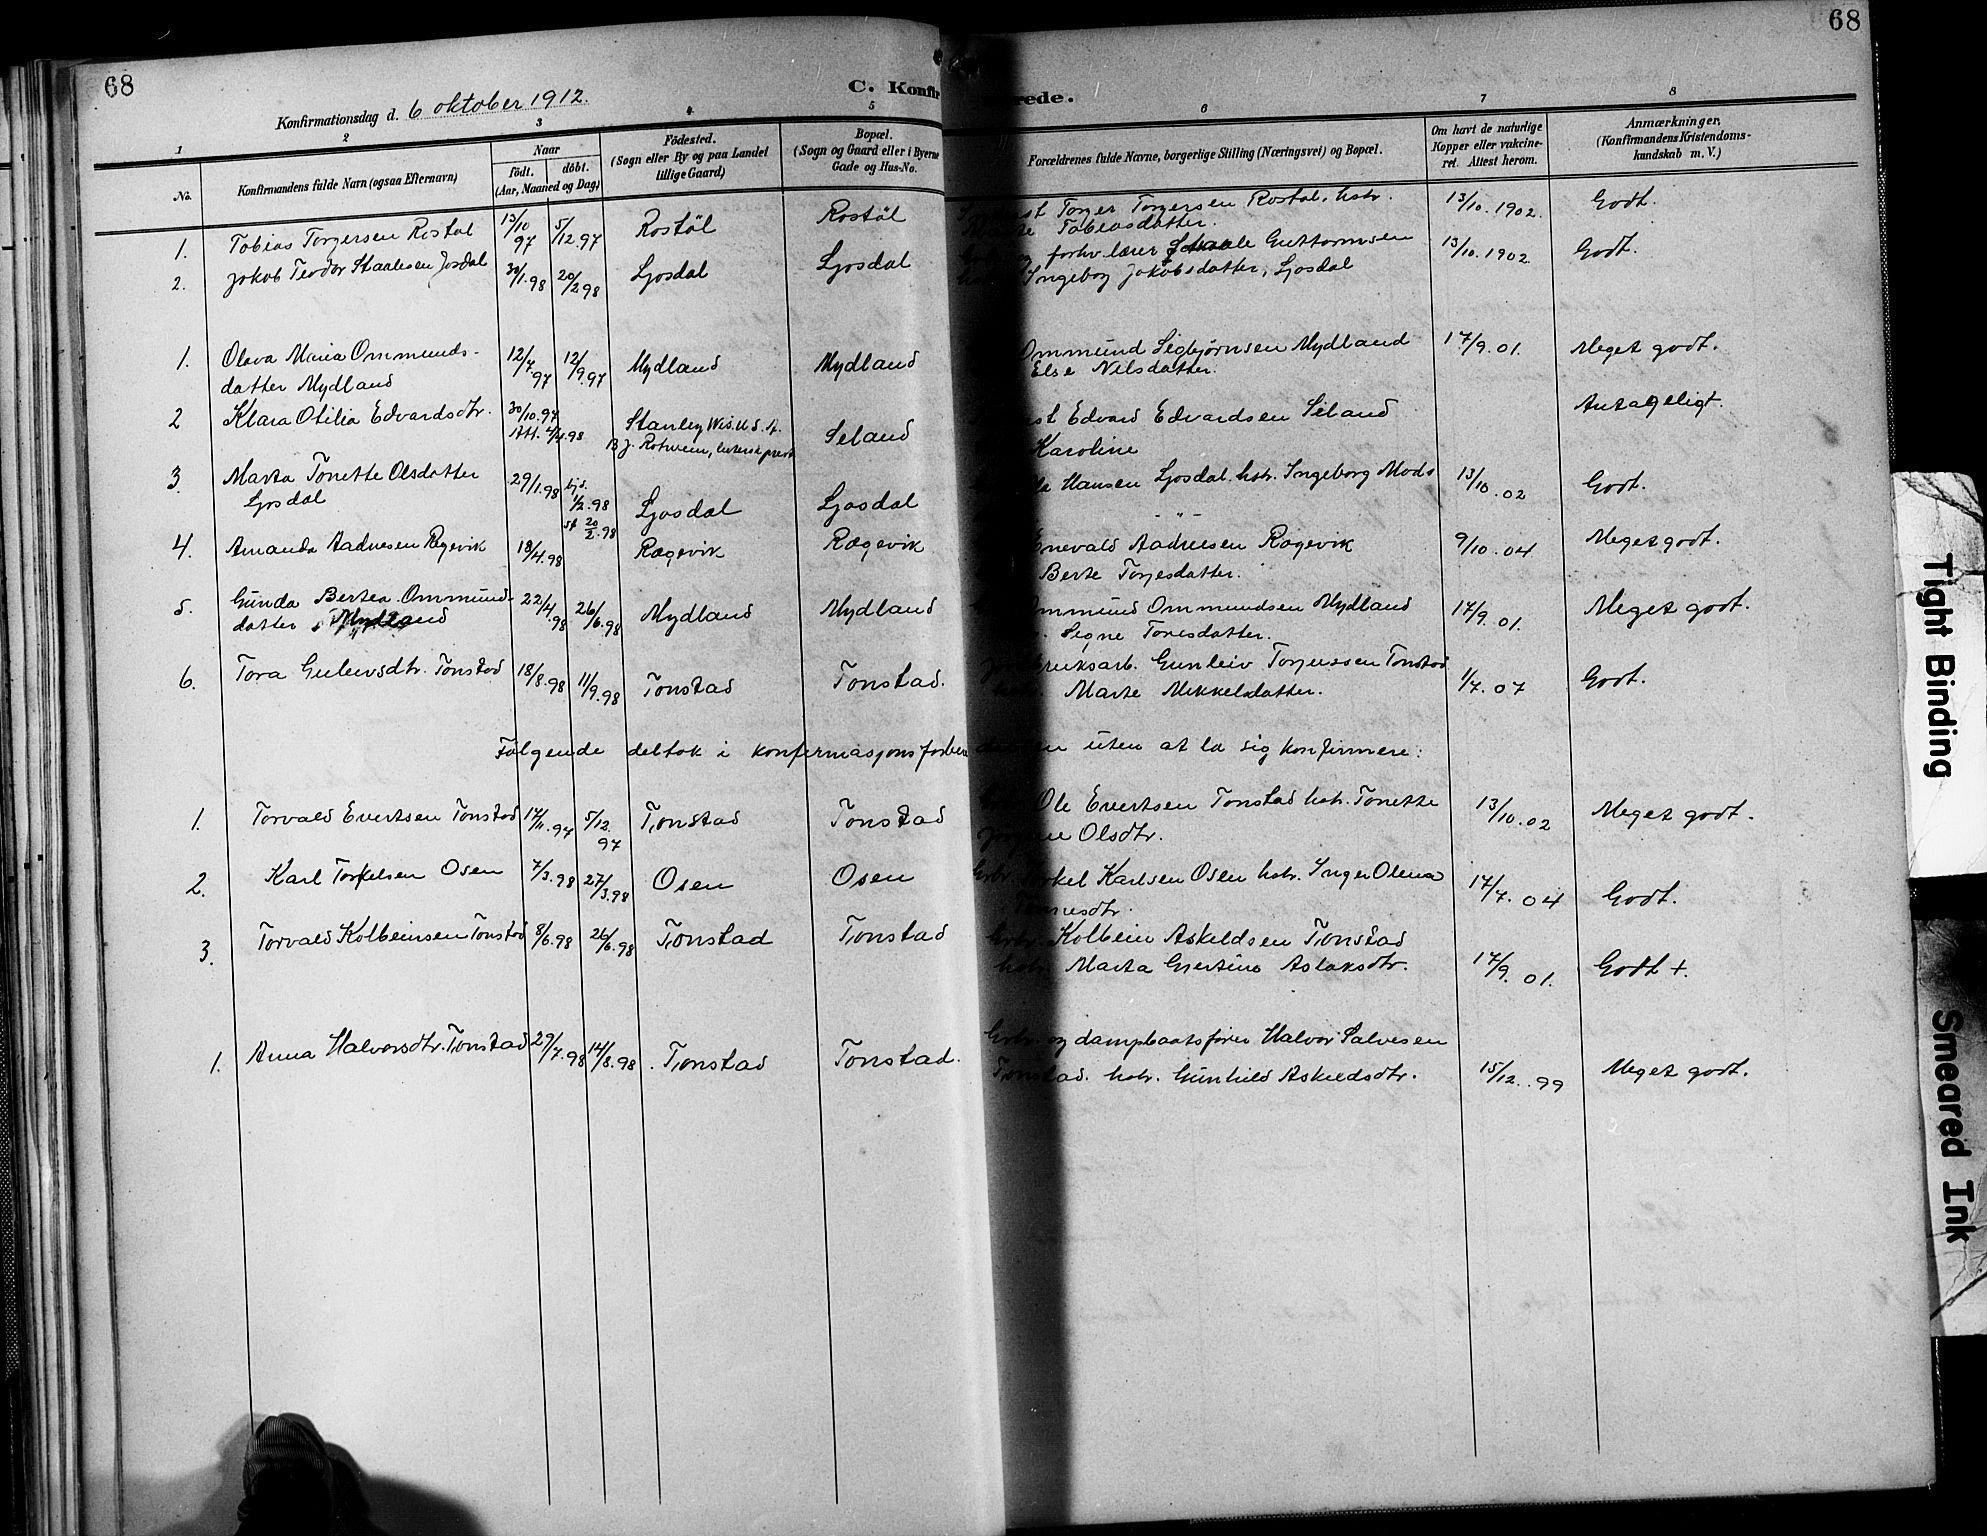 68
68
Konfirmationsdag d. 6 oktober 1912.
C. Konfir rede.
1 2 3 4 5 6 7 8
No.
Konfirmandens fulde Navn (ogsaa Efternavn)
Naar
födt. döbt.
(Aar, Maaned og Dag)
Födested.
(Sogn eller By og paa Landet
tillige Gaard)
Bopæl.
(Sogn og Gaard eller i Byerne
Gade og Hus-No.
Forældrenes fulde Navne, borgerlige Stilling (Næringsvei) og Bopæl.
Om havt de naturlige
Kopper eller vakcine-
ret. Attest herom.
Anmærkninger,
(Konfirmandens Kristendoms-
kundskab m. V.)
1. Tobias Torgersen Rostøl 13/10 97 5/12.97 Rostöl Rostöl Torger Torgersen Rostøl, hstr. 13/10.1902. Godt.
Tobiasdatter.
2. Jakob Teodor Staalesen Josdal 30/1.98 20/2.98 Ljosdal Ljosdal forhv. lærer Guttormsen 13/10.1902 Godt.
Ingeborg Jakobsdatter, Ljosdal
1. Olava Maria Ommunds- 12/7 97 12/9.97 Mydland Mydland Ommund Sigbjørnsen Mydland 17/9.01. Meget godt.
datter Mydland Else Nilsdatter.
2 Klara Otilia Edvardsdtr. 30/10.97 Stanley Wis. U.S.A. Seland Edvard Edvardsen Seland Antageligt.
Att. 4/4.98 B.J. Rotwem, luthersk prest Karoline
3. Marta Tonette Olsdatter 29/1.98 hjd. 1/2.98 Ljosdal Ljosdal Hansen Ljosdal. hstr. Ingeborg Mads 13/10.02 Godt.
Ljosdal st 20/2.98 - " -
4. Amanda Aadnesen Regevik 18/4.98 Rægevik Rægevik Enevald Aadnesen Rægevik 9/10.04 Meget godt.
Berte Torjesdatter.
5. Gunda Bertea Ommund- 22/4.98 26/6.98 Mydland Mydland Ommund Ommundsen Mydland 17/9.01. Meget godt.
datter Mydland Signe Toresdatter.
6. Tora Gulevsdtr. Tonstad 18/8.98 11/9.98 Tonstad Tonstad. bruksarb. Gunleiv Torjussen Tonstad 1/7.07 Godt.
Marte Mikkelsdatter.
Følgende deltok i konfirmasjonsforbere uten at la sig konfirmere:
1. Torvald Evertsen Tonstad 17/11.97 5/12.97 Tonstad Tonstad Ole Evertsen Tonstad hstr. Tonette 13/10.02 Meget godt.
Olsdtr.
2. Karl Torkelsen Osen 7/3.98 27/3.98 Osen Osen Grbr. Torkel Karlsen Osen hstr. Inger Olena 17/7.04 Godt.
Tonnesdtr.
3. Torvald Kolbeinsen Tonstad 8/6.98 26/6.98 Tonstad Tonstad Grbr. Kolbein Askeldsen Tonstad
hstr. Marta Gjertine Aslaksdtr. 17/9.01. Godt +.
1. Anna Halvorsdtr. Tonstad 29/7.98 14/8.98 Tonstad Tonstad. Grbr. og dampbaatsfører Halvor Salvesen
Tonstad. hstr. Gunhild Askeldsdtr. 15/12.99 Meget godt.
Tight Binding
Smeared Ink